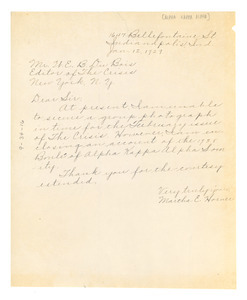 [ALPHA KAPPA ALPHA]
Bellefontaine St.
Indianapolis, Ind.
Jan. 12, 1927
Mr. W. E. B. Du Bois
Editor of The Crisis
New York, N. Y.
Dear Sir,
At present I am unable
to secure a group photograph
in time for the February issue
of The Crisis. However, I am in
closing an account of the
Boulé of Alpha Kappa Alpha Soror
ity.
Thank you for the courtesy
extended.
Very truly yours
Martha E.